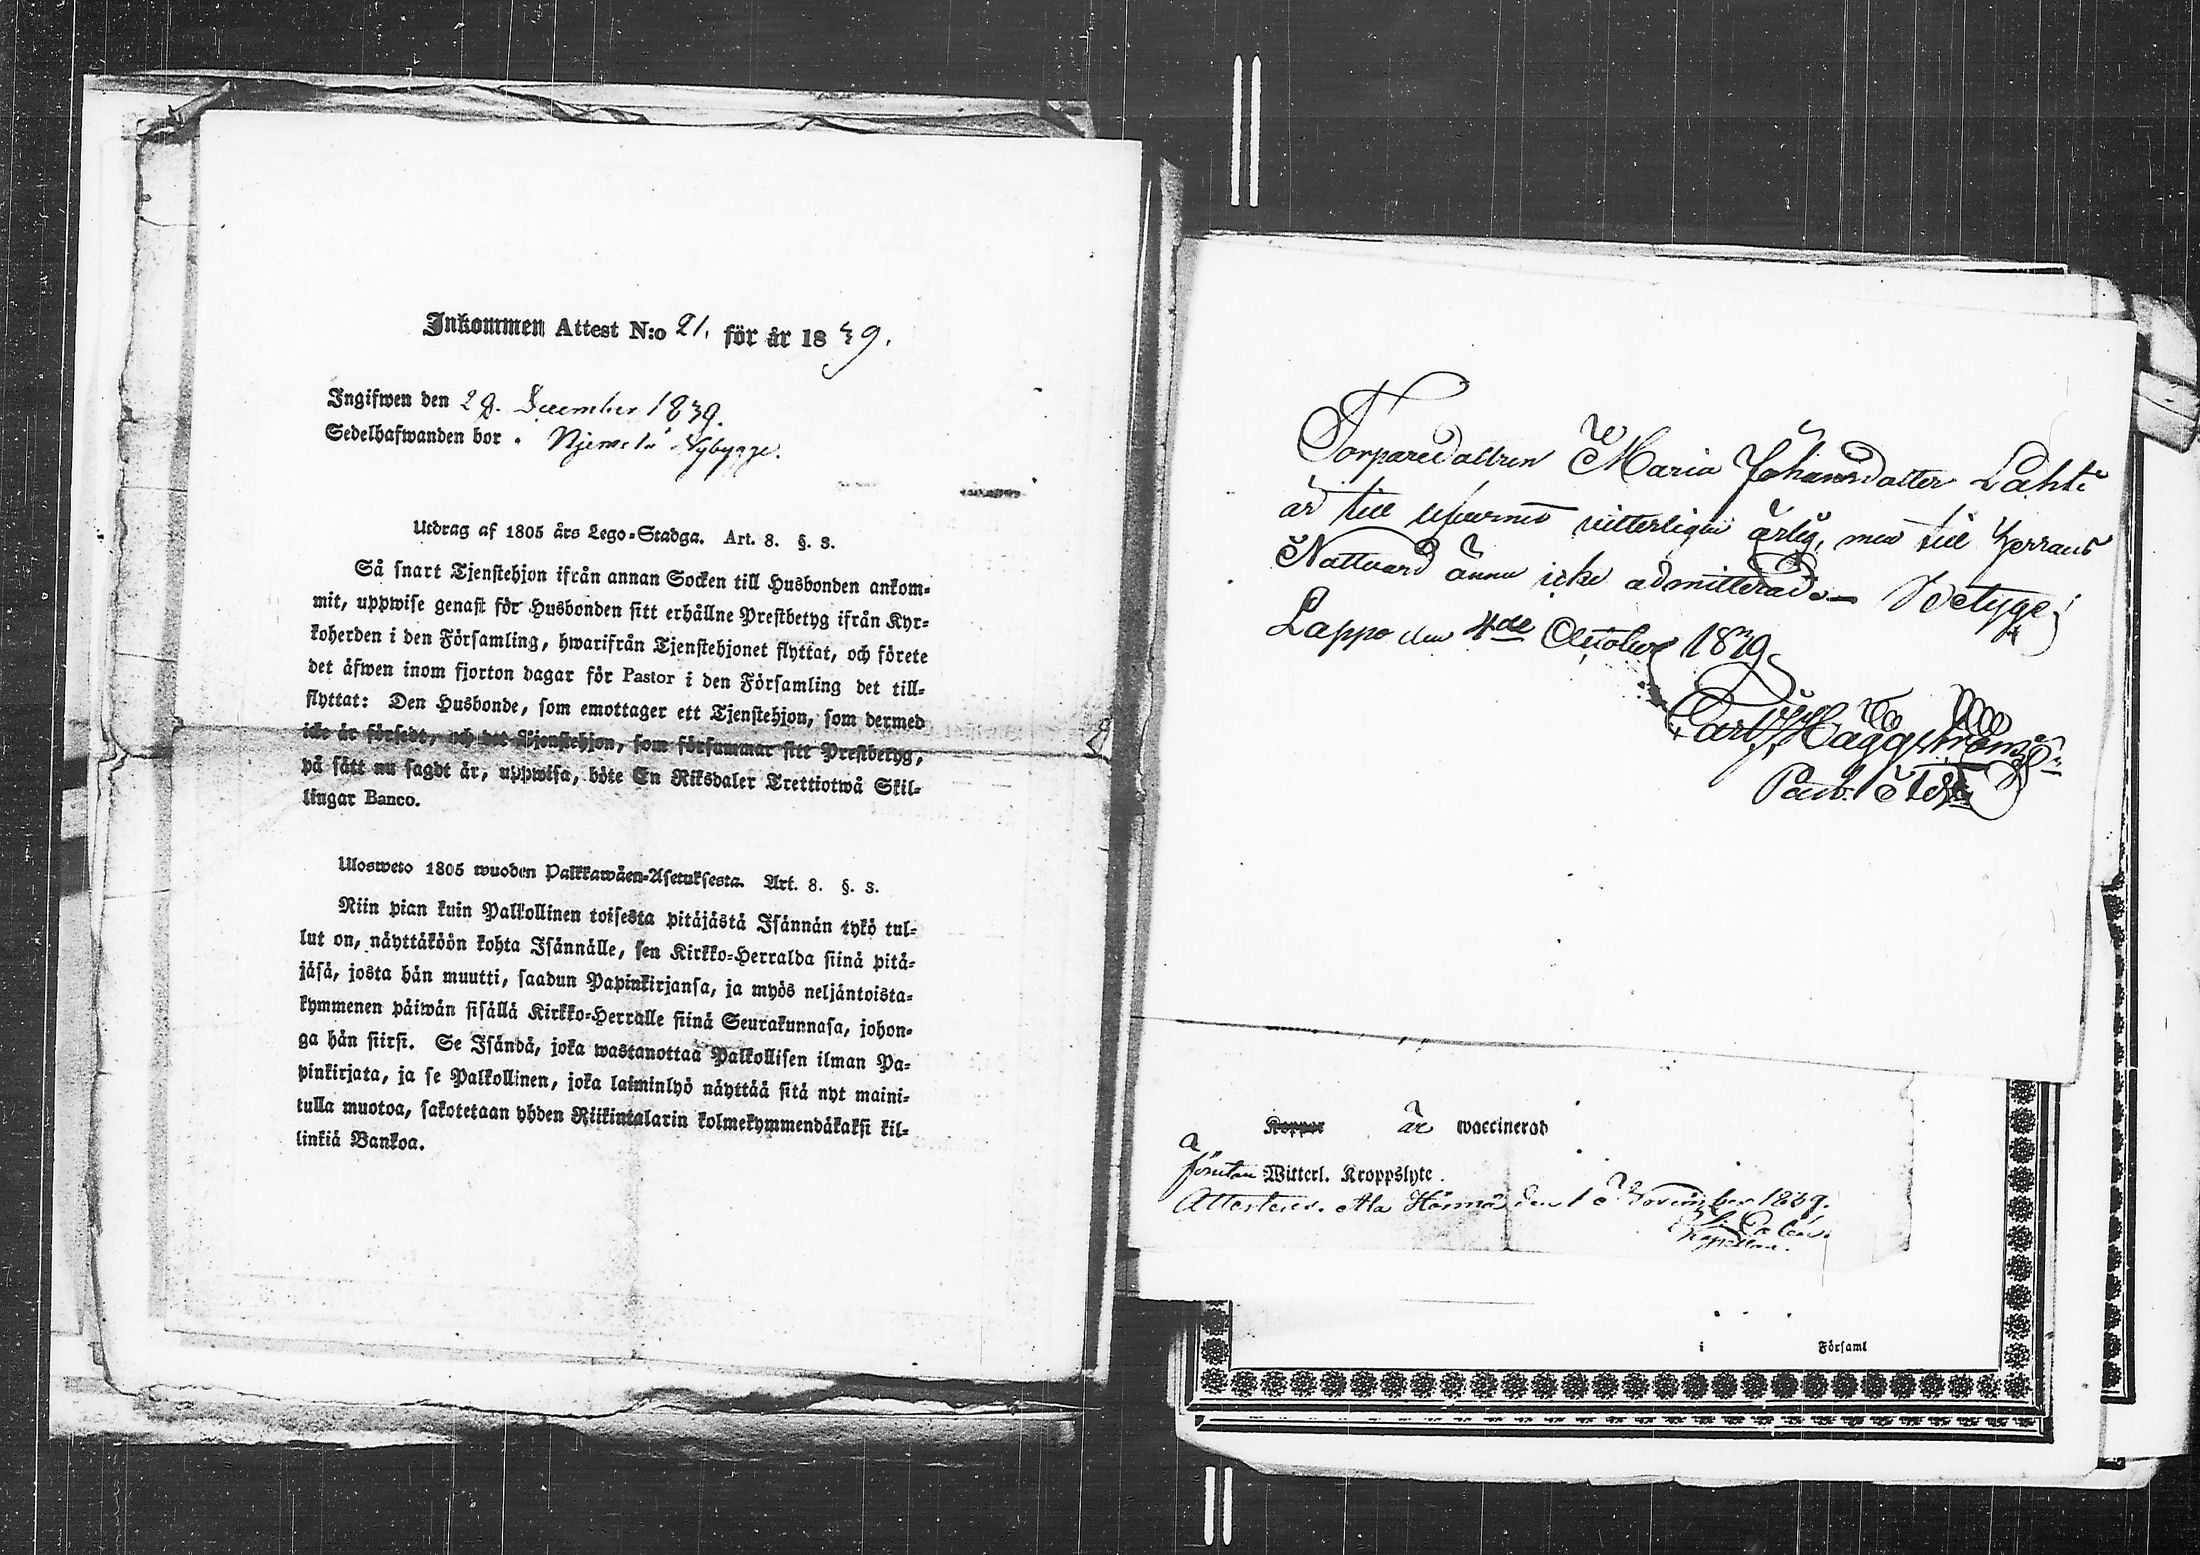 Inkommen Attest N:o 21. för år 1839.
Ingifwen den 29. December 1839.
Sedelhafwanden bor . Njemelä Nybygge.
Utdrag af 1805 års Lego-Stadga. Art. 8. §. 3.
Så snart Tjenstehjon ifrån annan Socken till Husbonden ankom-
mit, uppwise genast för Husbonden sitt erhållne Prestbetyg ifrån Kyr-
koherden i den Församling, hwarifrån Tjenstehjonet flyttat, och förete
det äfwen inom fjorton dagar för Pastor i den Församling det till-
flyttat: Den Husbonde, som emottager ett Tjenstehjon, som dermed
icke är försedt, och det Tjenstehjon, som försummar sitt Prestbetyg,
på sätt nu sagdt är, uppwisa, böte En Riksdaler Trettiotwå Skil-
lingar Banco.
Ulosweto 1805 wuoden Palkkawäen-Asetuksesta. Art. 8. §. 3.
Niin pian kuin Palkollinen toisesta pitäjästä Isännän tykö tul-
lut on, näyttäköön kohta Isännälle, sen Kirkko-Herralda siinä pitä-
jäsä, josta hän muutti, saadun Papinkirjansa, ja myös neljäntoista-
kymmenen päiwän sisällä Kirkko-Herralle siinä Seurakunnasa, johon-
ga hän siirsi. Se Isändä, joka wastanottaa Palkollisen ilman Pa-
pinkirjata, ja se Palkollinen, joka laiminlyö näyttää sitä nyt maini-
tulla muotoa, sakotetaan yhden Riikintalarin kolmekymmendäkaksi kil-
linkiä Bankoa.
Torparedottren Maria Johansdotter Lahti
är till witterligen ärlig, men till Herrans
Nattvard ännu icke admitterad - Betygar
Lappo den 4de October 1839
Carl Häggström
Past.
Koppor är waccinerad
förutan Witterl. Kroppslyte.
Attesteras. Ala Härmä den 1 November 1839.
Kapellan.
i Församl